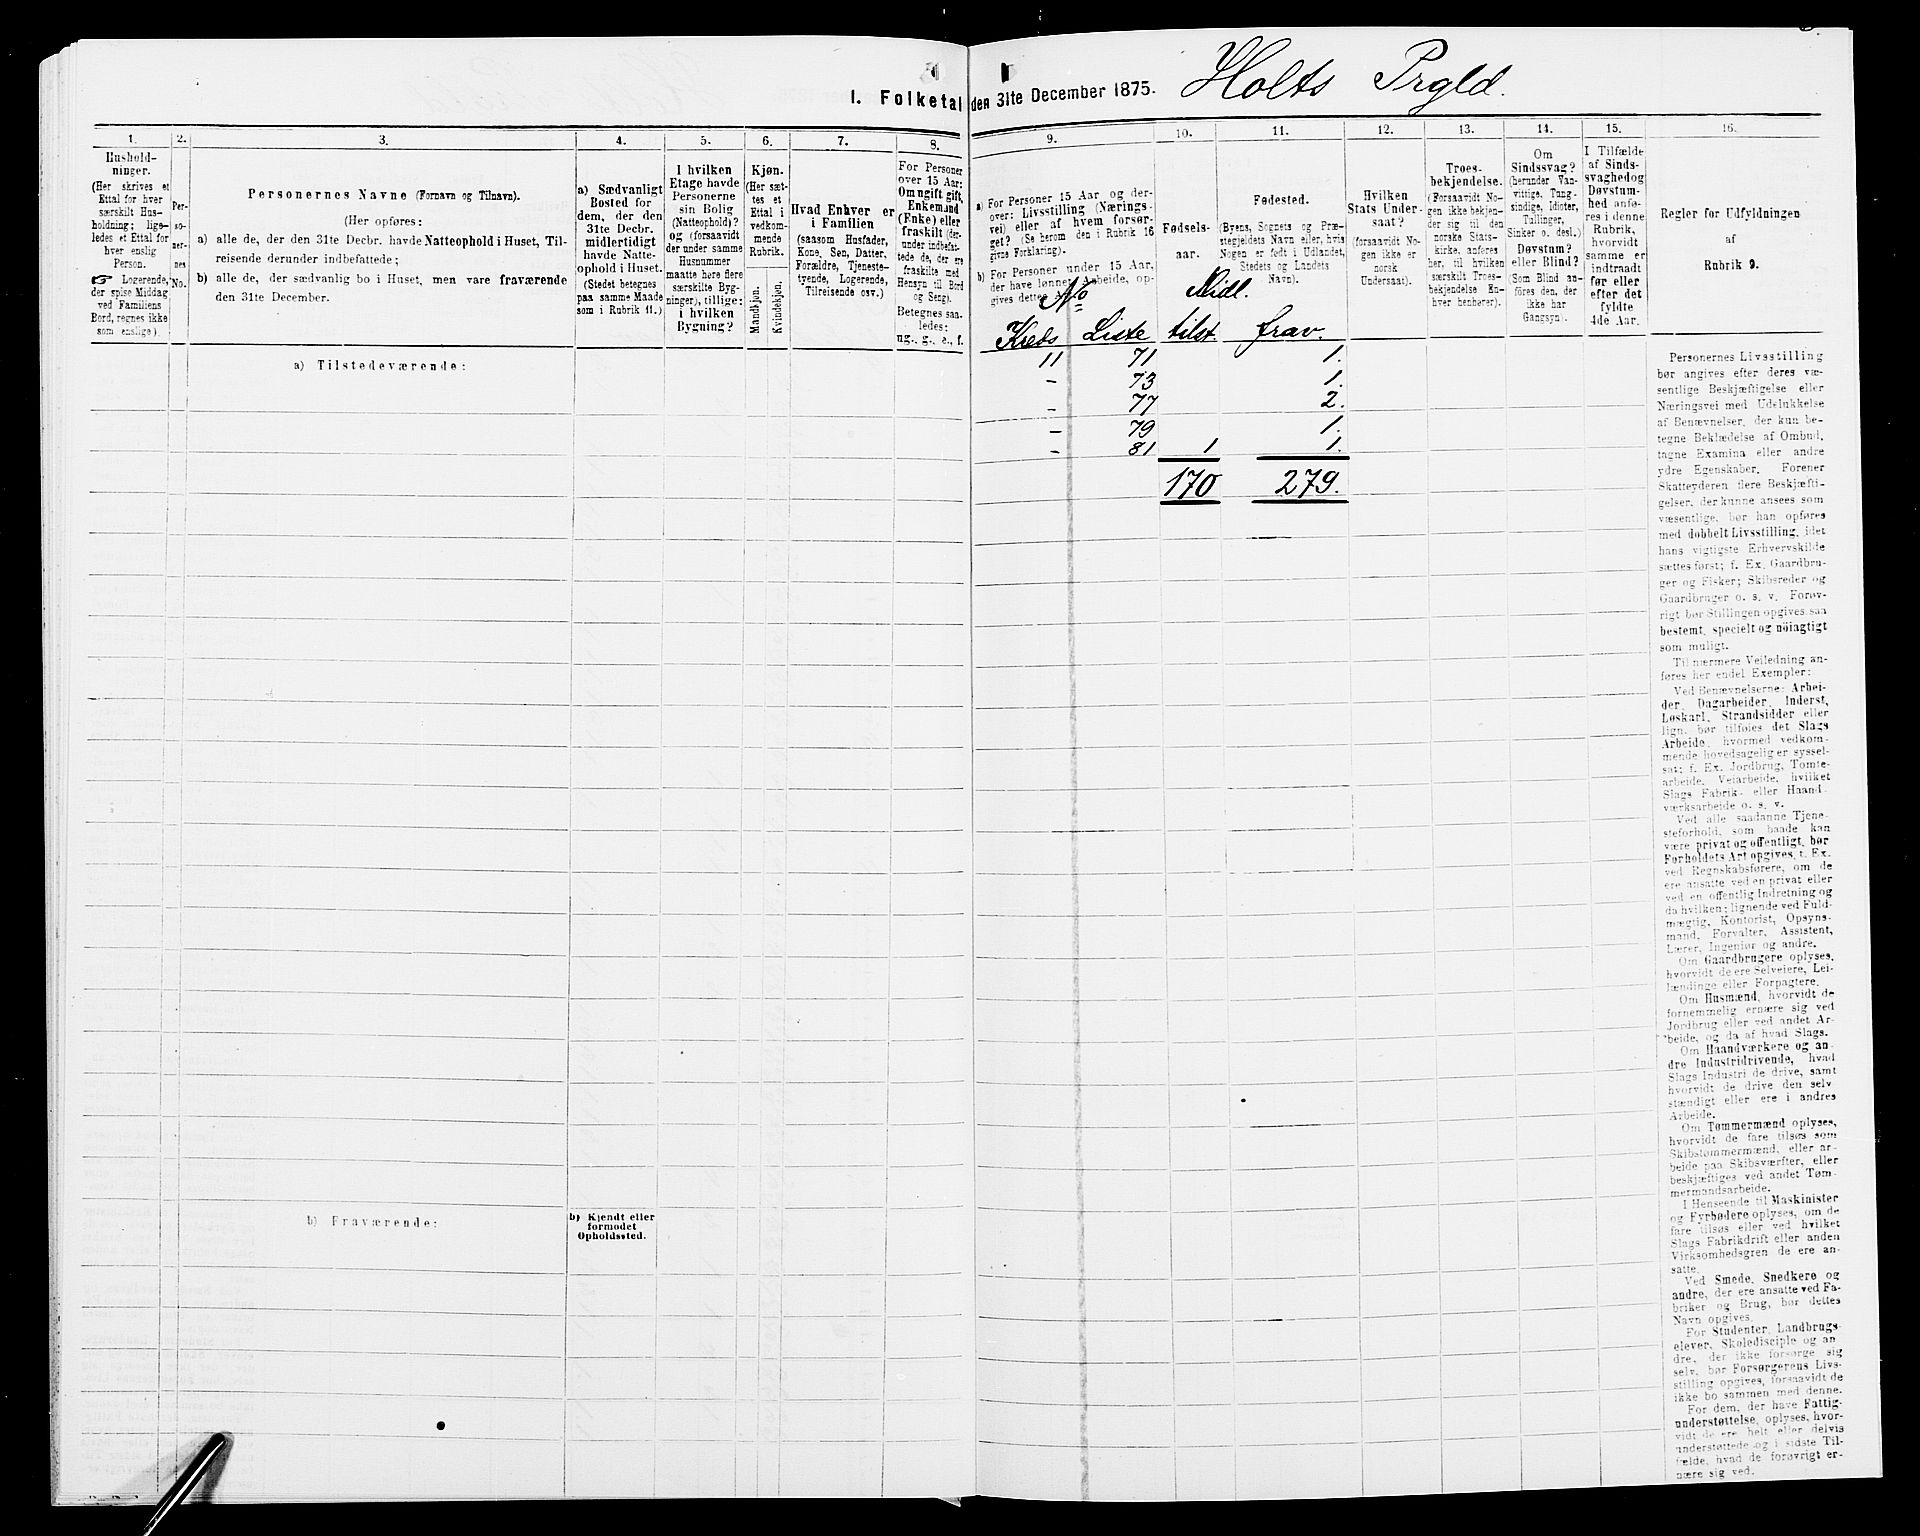 I. Folketal den 31te December 1875. Holts Prgld.
1.
Hushold-
ninger.
(Her skrives et
Ettal for hver
særskilt Hus-
holdning; lige-
ledes et Ettal for
hver enslig
Person.
☞ Logerende,
der spise Middag
ved Familiens
Bord, regnes ikke
som enslige).
2.
Per-
so-
ner-
nes
No.
3.
Personernes Navne (Fornavn og Tilnavn).
(Her opføres:
a) alle de, der den 31te Decbr. havde Natteophold i Huset, Til-
reisende derunder indbefattede;
b) alle de, der sædvanlig bo i Huset, men vare fraværende
den 31te December.
4.
a) Sædvanligt
Bosted for
dem, der den
31te Decbr.
midlertidigt
havde Natte-
ophold i Huset.
(Stedet betegnes
paa samme Maade
som i Rubrik 11.)
5.
I hvilken
Etage havde
Personerne
sin Bolig
(Natteophold)?
og (forsaavidt
der under samme
Husnummer
maatte høre flere
særskilte Byg-
ninger), tillige:
i hvilken
Bygning?
6.
Kjøn.
(Her sæt-
tes et
Ettal i
vedkom-
mende
Rubrik.
Mandkjøn.
Kvindekjøn.
7.
Hvad Enhver er
i Familien
(saasom Husfader,
Kone, Søn, Datter,
Forældre, Tjeneste-
tyende, Logerende,
Tilreisende osv.)
8.
For Personer
over 15 Aar:
Om gift,
Enkemand
(Enke) eller
fraskilt (der-
under indbefat-
tede de, der ere
fraskilte med
Hensyn til Bord
og Seng).
Betegnes saa-
ledes:
ug., g., e., f.
9.
a) For Personer 15 Aar og der-
over: Livsstilling (Nærings-
vei) eller af hvem forsør-
get? (Se herom den i Rubrik 16
givne Forklaring).
b) For Personer under 15 Aar,
der have lønnet Arbeide, op-
gives dette A
10.
Fødsels-
aar.
11.
Fødested.
(Byens, Sognets og Præ-
stegjeldets Navn eller, hvis
Nogen er født i Udlandet,
Stedets og Landets
Navn).
12.
Hvilken
Stats Under-
saat?
(forsaavidt No-
gen ikke er
norsk
Undersaat).
13.
Troes-
bekjendelse.
(Forsaavidt No-
gen ikke bekjen-
der sig til den
norske Stats-
kirke, anføres
her, til hvilken
særskilt Troes-
bekjendelse En-
hver henhører).
14.
Om
Sindssvag?
(herunder Van-
vittige, Tung-
sindige, Idioter,
Tullinger,
Sinker o. desl.)
Døvstum?
eller Blind?
(Som Blind an-
føres den, der
ikke har
Gangsyn).
15.
I Tilfælde
af Sinds-
svaghed og
Døvstum-
hed anfø-
res i denne
Rubrik,
hvorvidt
samme er
indtraadt
før eller
efter det
fyldte
4de Aar.
16.
Regler for Udfyldningen
af
Rubrik 9.
No Midl.
Kreds Liste tilst. frav.
11 71 1.
- 73 1.
- 77 2.
- 79 1.
- 81 1 1.
170 279.
a) Tilstedeværende:
b) Fraværende:
b) Kjendt eller
formodet
Opholdssted.
Personernes Livsstilling
bør angives efter deres væ-
sentlige Beskjæftigelse eller
Næringsvei med Udelukkelse
af Benævnelser, der kun be-
tegne Beklædelse af Ombud,
tagne Examina eller andre
ydre Egenskaber. Forener
Skatteyderen flere Beskjæfti-
gelser, der kunne ansees som
væsentlige, bør han opføres
med dobbelt Livsstilling, idet
hans vigtigste Erhvervskilde
sættes først; f. Ex. Gaardbru-
ger og Fisker; Skibsreder og
Gaardbruger o. s. v. Forøv-
rigt bør Stillingen opgives saa
bestemt, specielt og nöiagtigt
som muligt.
Til nærmere Veiledning an-
føres her endel Exempler:
Ved Benævnelserne: Arbei-
der, Dagarbeider, Inderst,
Løskarl, Strandsidder eller
lign. bør tilføies det Slags
Arbeide, hvormed vedkom-
mende hovedsagelig er syssel-
sat; f. Ex. Jordbrug, Tomte-
arbeide, Veiarbeide, hvilket
Slags Fabrik- eller Haand-
værksarbeide o. s. v.
Ved alle saadanne Tjene-
steforhold, som baade kan
være privat og offentligt, bør
Forholdets Art opgives, t. Ex.
ved Regnskabsførere, om de
ere ansatte ved en privat eller
ved en offentlig Indretning og
da hvilken; lignende ved Fuld-
mægtig, Kontorist, Opsyns-
mand, Forvalter, Assistent,
Lærer, Ingeniør og andre.
Om Gaardbrugere oplyses,
hvorvidt de ere Selveiere, Lei-
lændinge eller Forpagtere.
Om Husmænd, hvorvidt de
fornemmelig ernære sig ved
Jordbrug eller ved andet Ar-
beide, og da af hvad Slags.
Om Haandværkere og an-
dre Industridrivende, hvad
Slags Industri de drive, samt
hvorvidt de drive den selv-
stændigt eller ere i andres
Arbeide.
Om Tømmermænd oplyses,
hvorvidt de fare tilsøs som
Skibstømmermænd, eller ar-
beide paa Skibsværfter, eller
beskjæftiges ved andet Tøm-
mermandsarbeide.
I Henseende til Maskinister
og Fyrbødere oplyses, om de
fare tilsøs eller ved hvilket
Slags Fabrikdrift eller anden
Virksomhedsgren de ere an-
satte.
Ved Smede, Snedkere og
andre, der ere ansatte ved Fa-
briker og Brug, bør dettes
Navn opgives.
For Studenter, Landbrugs-
elever, Skoledisciple og an-
dre, der ikke forsørge sig
selv, bør Forsørgerens Livs-
stilling opgives, forsaavidt de
ikke bo sammen med denne.
For dem, der have Fattig-
understøttelse, oplyses, hvor-
vidt de ere helt eller delvis
understøttede og i sidste Til-
fælde, hvad de forøvrigt er-
nære sig ved.